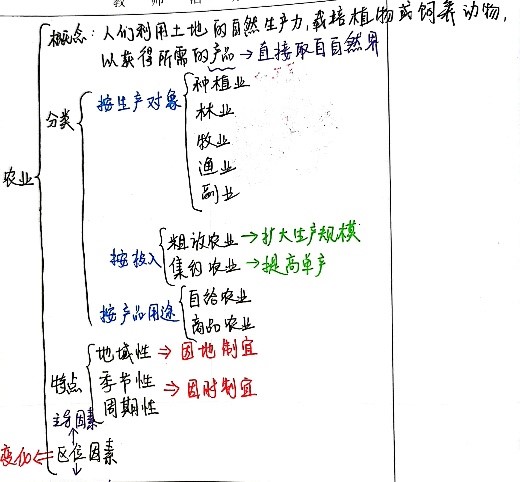 概念：人们利用土地的自然生产力，栽培植物或饲养动物，
以获得所需的产品→直接取自自然界
农业
分类
按生产对象
种植业
林业
牧业
渔业
副业
按投入
粗放农业→扩大生产规模
集约农业→提高单产
按产品用途
自给农业
商品农业
特点
地域性→因地制宜
季节性
周期性→因时制宜
主导因素
变化⇐区位因素